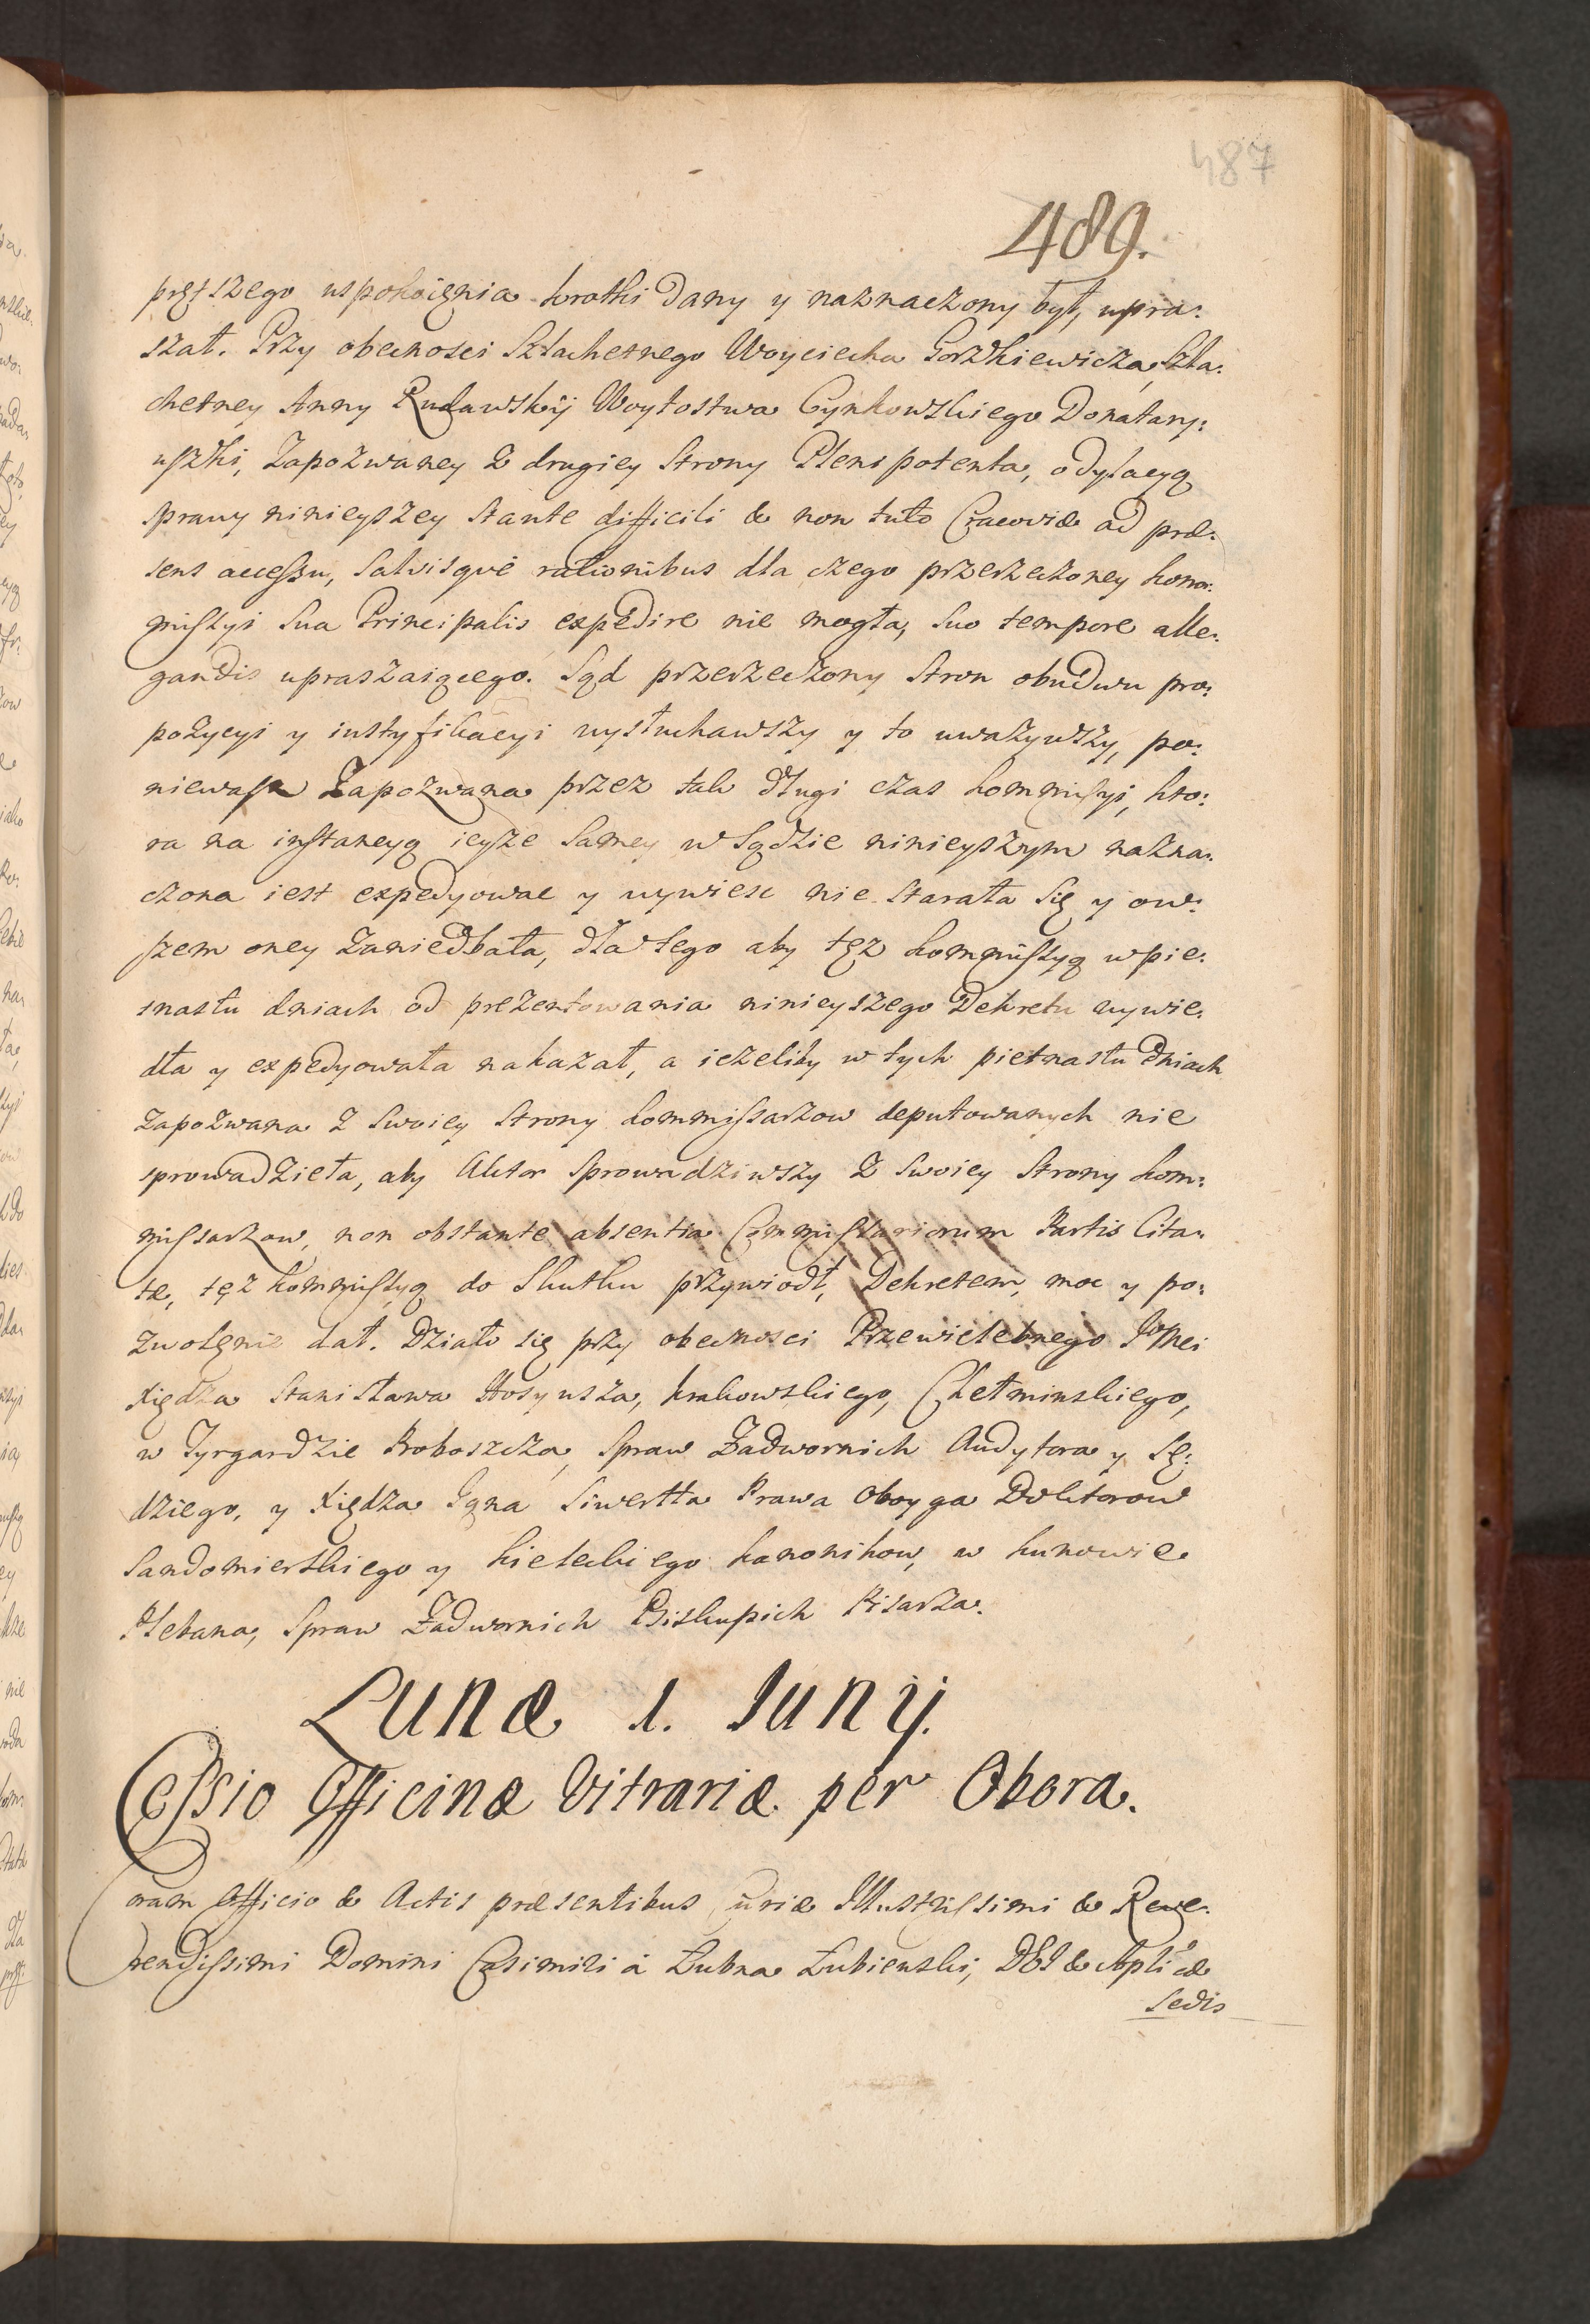 487
489.
prętszego uspokoięnia krotki dany y naznaczony był, upra:
szał. Przy obecnosci Szlachetnego Woyciecha Gorzkiewicza, Szla:
chetney Anny Rudawskiÿ Woytostwa Cynkowskiego Donatary:
uszki, Zapozwaney z drugiey Strony Plenipotenta, o dylacyą
sprawy ninieyszey stante difficili & non tuto Cracoviæ ad præ:
sens accessu, salvisque rationibus dla czego przerzeczoney kom:
missyi sua Principalis expedire nie mogła, suo tempore alle:
gandis upraszaiącego. Sąd przerzeczony Stron obudwu pro:
pozycyi y iustyfikacyi wysłuchawszy y to uważywszy, po:
niewasz Zapozwana przez tak długi czas kommissyi, kto:
ra na instancyą ieyze samey w Sądzie ninieyszym nazna:
czona iest expedyowac y wywiesc nie starała się y ow:
szem oney zaniedbała, dla tego aby tęz kommissyą w pie:
tnastu dniach od prezentowania ninieyszego Dekretu wywie:
dła y expedyowała nakazał, a iezeliby w tych pietnastu dniach
zapozwana z swoiey Strony kommissarzow deputowanych nie
sprowadzieła, aby Aktor sprowadziwszy z swoiey Strony kom:
missarzow, non obstante absentia Commissariorum Partis Cita:
tæ, tęz kommissyą do skutku przywiodł, Dekretem, moc y po:
zwolęnie dał. Działo się przy obecnosci Przewielebnego Jmci
Xiędza Stanisława Hosyusza, krakowskiego, Chełminskiego,
w Tyrgardzie Proboszcza, Spraw Zadwornich Audytora y Sę:
dziego, y Xiędza Jana Siwertta Prawa Oboyga Doktorow
Sandomierskiego y kieleckiego kanonikow, w kunowie
Plebana, Spraw Zadwornich Biskupich Pisarza.
Lunæ 1. Iunÿ.
Cessio Officinæ Vitrariæ per Obora.
Coram Officio & Actis præsentibus Curiæ Illustrissimi & Reve:
rendissimi Domini Casimiri à Łubna Łubienski, DEI & Aplicæ
Sedis